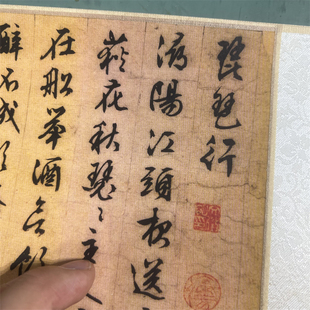 琵琶行
潯陽江頭夜送
荻花秋瑟々主人
在船举酒欲飲
醉不成